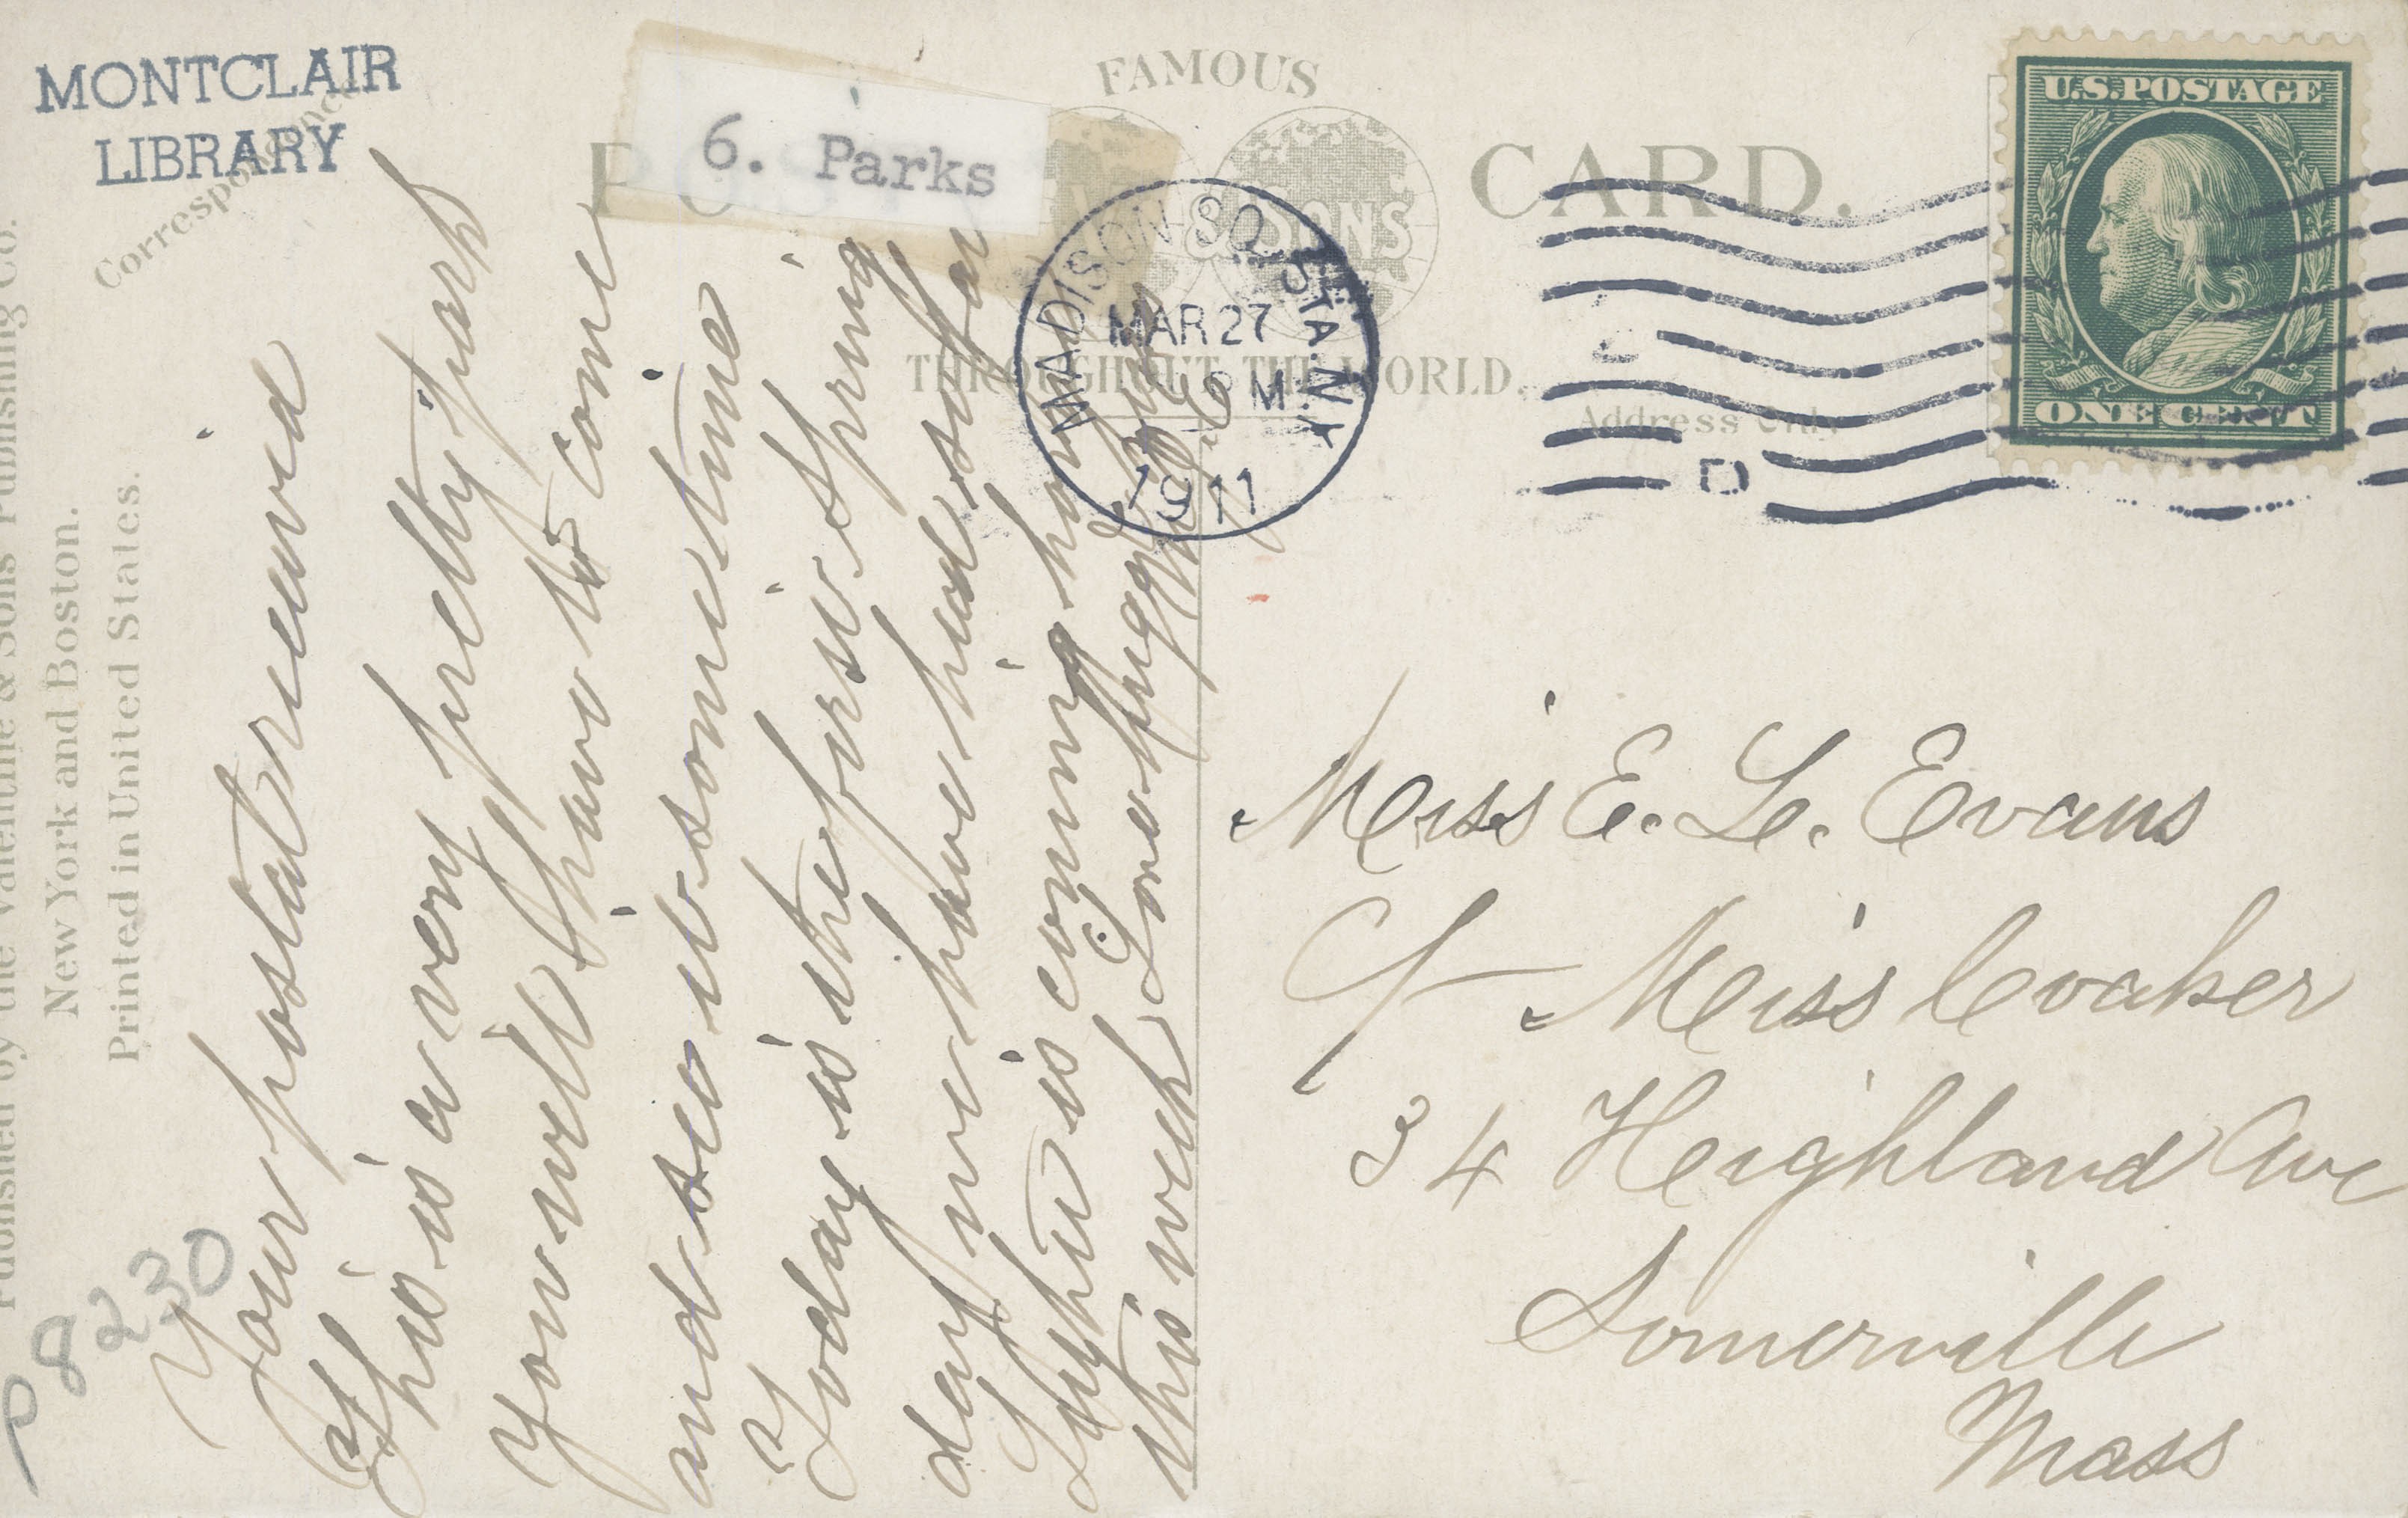 MONTCLAIR
LIBRARY
Correspondence
6. Parks
FAMOUS
CARD.
& SONS
THROUGHOUT THE WORLD.
Address Only
U.S. POSTAGE
ONE CENT
MADISON SQ. STA. N.Y.
MAR 27
PM
1911
D
Published by the Valentine & Sons Publishing Co.
New York and Boston.
Printed in United States.
P8230
Your postal received
This is a very pretty park
You will have to come
and see it sometime
Today is the first spring
day we have had so far
is coming home
this week Love
Miss E. L. Evans
c/- Miss Coaker
34 Heighland Ave
Somerville
Mass